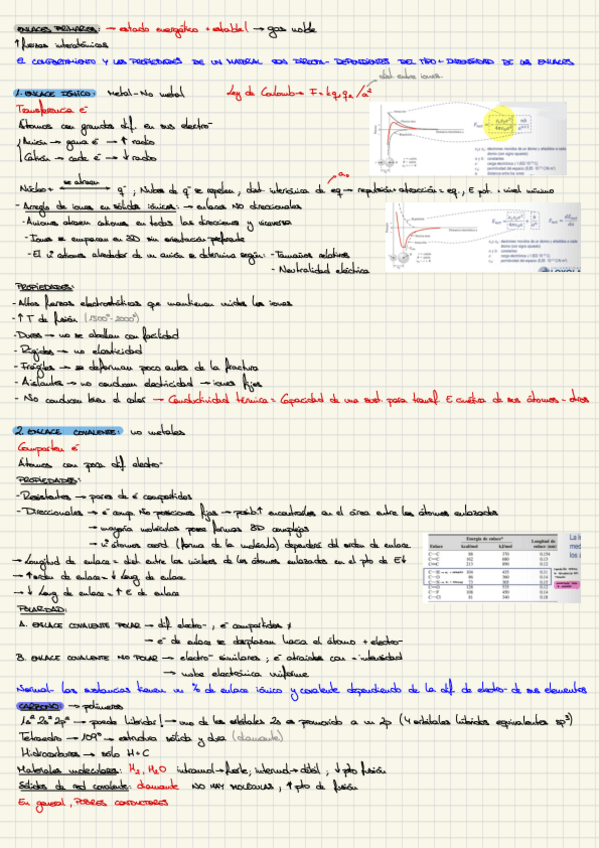 ENLACES PRIMARIOS: → estado energético + estable! → gas noble
↑ fuerzas interatómicas
EL COMPORTAMIENTO Y LAS PROPIEDADES DE UN MATERIAL SON DIRECTA- DEPENDIENTES DEL TIPO + INTENSIDAD DE LOS ENLACES
dist. entre iones
1. ENLACE IÓNICO: Metal - No metal Ley de Coulomb →
Transferencia e-
Átomos con grandes dif. en sus electro-
Anión → gana e- ↑ radio
Catión → cede e- ↓ radio
a₀
Núcleo + se atraen q-, Nubes de q- se repelen, dist. interiónica de eq → repulsión = atracción = eq., E pot. = nivel mínimo
- Arreglo de iones en sólidos iónicos: → enlaces NO direccionales
- Aniones atraen cationes en todas las direcciones y viceversa
- Iones se empacan en 3D sin orientación preferente
- El nº átomos alrededor de un anión se determina según: - Tamaños relativos
- Neutralidad eléctrica
PROPIEDADES:
- Altas fuerzas electrostáticas que mantienen unidos los iones
- ↑ T de fusión (1500°-2000°)
- Duros → no se abollan con facilidad
- Rígidos → no elasticidad
- Frágiles → se deforman poco antes de la fractura
- Aislantes → no conducen electricidad → iones fijos
- No conducen bien el calor → Conductividad térmica = Capacidad de una sust. para transf. E cinética de sus átomos - otros
2. ENLACE COVALENTE: no metales
Comparten e-
Átomos con poca dif. electro-
PROPIEDADES:
- Resistentes → pares de e- compartidos
- Direccionales → e- comp. No posiciones fijas → posib. ↑ encontrarlos en el área entre los átomos enlazados
→ mayoría moléculas posee formas 3D complejas
→ nº átomos coord. (forma de la molécula) dependerá del orden de enlace
→ Longitud de enlace = dist. entre los núcleos de los átomos enlazados en el pto de E↓
→ ↑ orden de enlace = ↓ long de enlace
→ ↓ Long de enlace = ↑ E de enlace
POLARIDAD:
A. ENLACE COVALENTE POLAR → dif. electro-, e- compartidos ≠
→ e- de enlace se desplazan hacia el átomo + electro-
B. ENLACE COVALENTE NO POLAR → electro- similares, e- atraídos con = intensidad
→ nube electrónica uniforme
Normal- las sustancias tienen un % de enlace iónico y covalente dependiendo de la dif. de electro- de sus elementos
CARBONO → polímeros
1s² 2s² 2p² → puede hibridar! → uno de los orbitales 2s es promovido a un 2p (4 orbitales híbridos equivalentes sp³)
Tetraedro → 109° → estructura sólida y dura (diamante)
Hidrocarburos → sólo H + C
Materiales moleculares: H₂, H₂O intramol → fuerte; intermol → débil, ↓ pto fusión
Sólidos de red covalente: diamante NO HAY MOLÉCULAS, ↑ pto de fusión
En general, POBRES CONDUCTORES